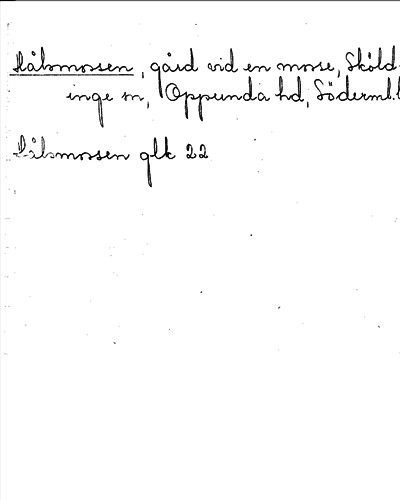 Hålsmossen, gård vid en mosse, Sköld-
inge sn, Oppunda hd, Söderml. l
Hålsmossen glk 22